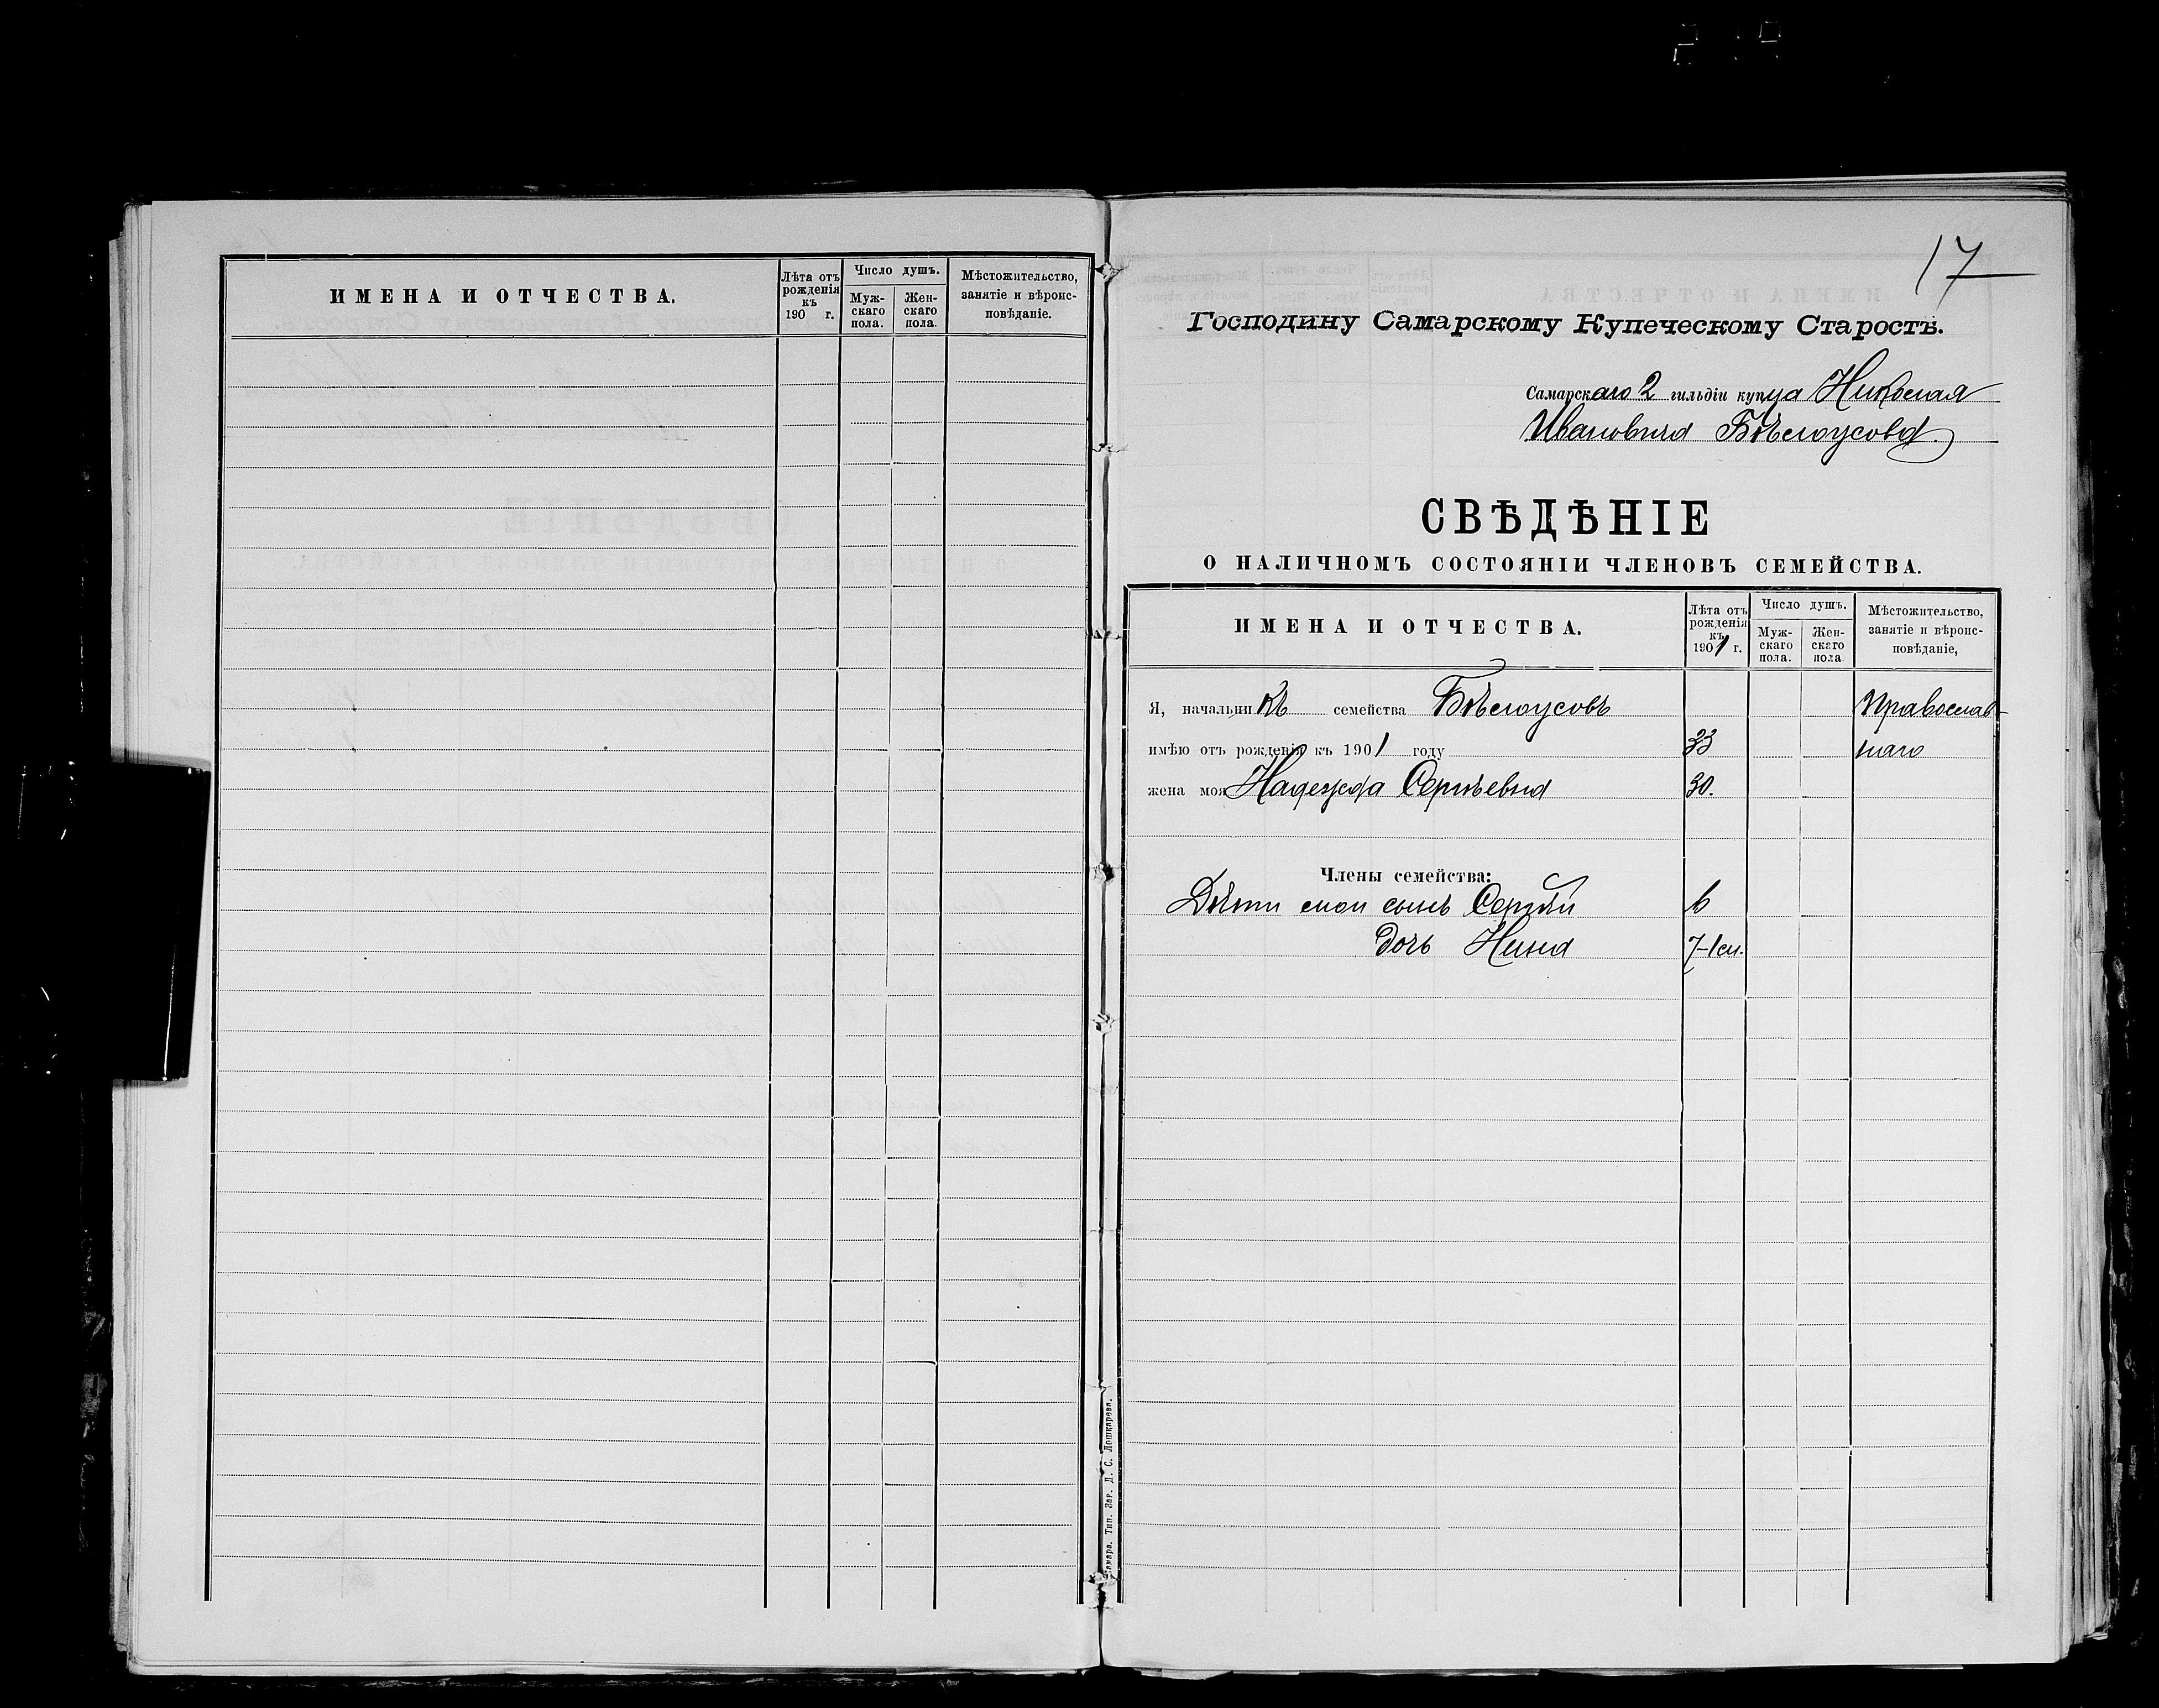 ИМЕНА И ОТЧЕСТВА.
Лѣта отъ рожденія къ 190 г.
Число душъ.
Мужскаго пола.
Женскаго пола.
Мѣстожительство, занятіе и вѣроисповѣданіе.
17
Господину Самарскому Купеческому Старостѣ.
Самарскаго 2 гильдіи купца Николая
Ивановича Бѣлоусова.
СВѢДѢНІЕ
О НАЛИЧНОМЪ СОСТОЯНІИ ЧЛЕНОВЪ СЕМЕЙСТВА.
ИМЕНА И ОТЧЕСТВА.
Лѣта отъ рожденія къ 1901 г.
Число душъ.
Мужскаго пола.
Женскаго пола
Мѣстожительство, занятіе и вѣроисповѣданіе,
Я, начальникъ семейства Бѣлоусовъ Православ-
имѣю отъ рожденія къ 1901 году 33 наго
жена моя Надежда Сергѣевна 30.
Члены семейства:
Дѣти мои сынъ Сергѣй 6
дочь Нина 7-1м.
Самара. Тип. Заг. Д. С. Лошкарева.